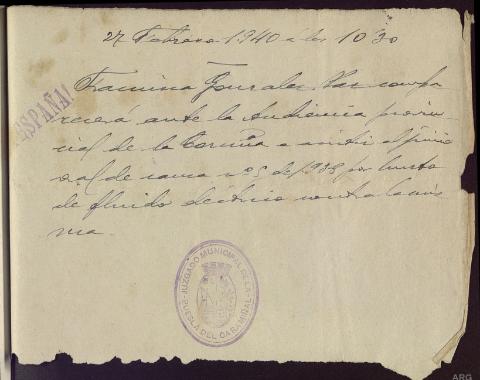 27 Febrero 1940 a las 10'30
ESPAÑA!
Gonzales Vas compa
recerá ante la Audiencia provin
cial de la Coruña a asistir al juicio
oral de causa nº 5 de 1939 por hurto
de fluido eléctrico contra la mis
ma.
JUZGADO MUNICIPAL DE LA
PUEBLA DEL CARAMIÑAL
ARG